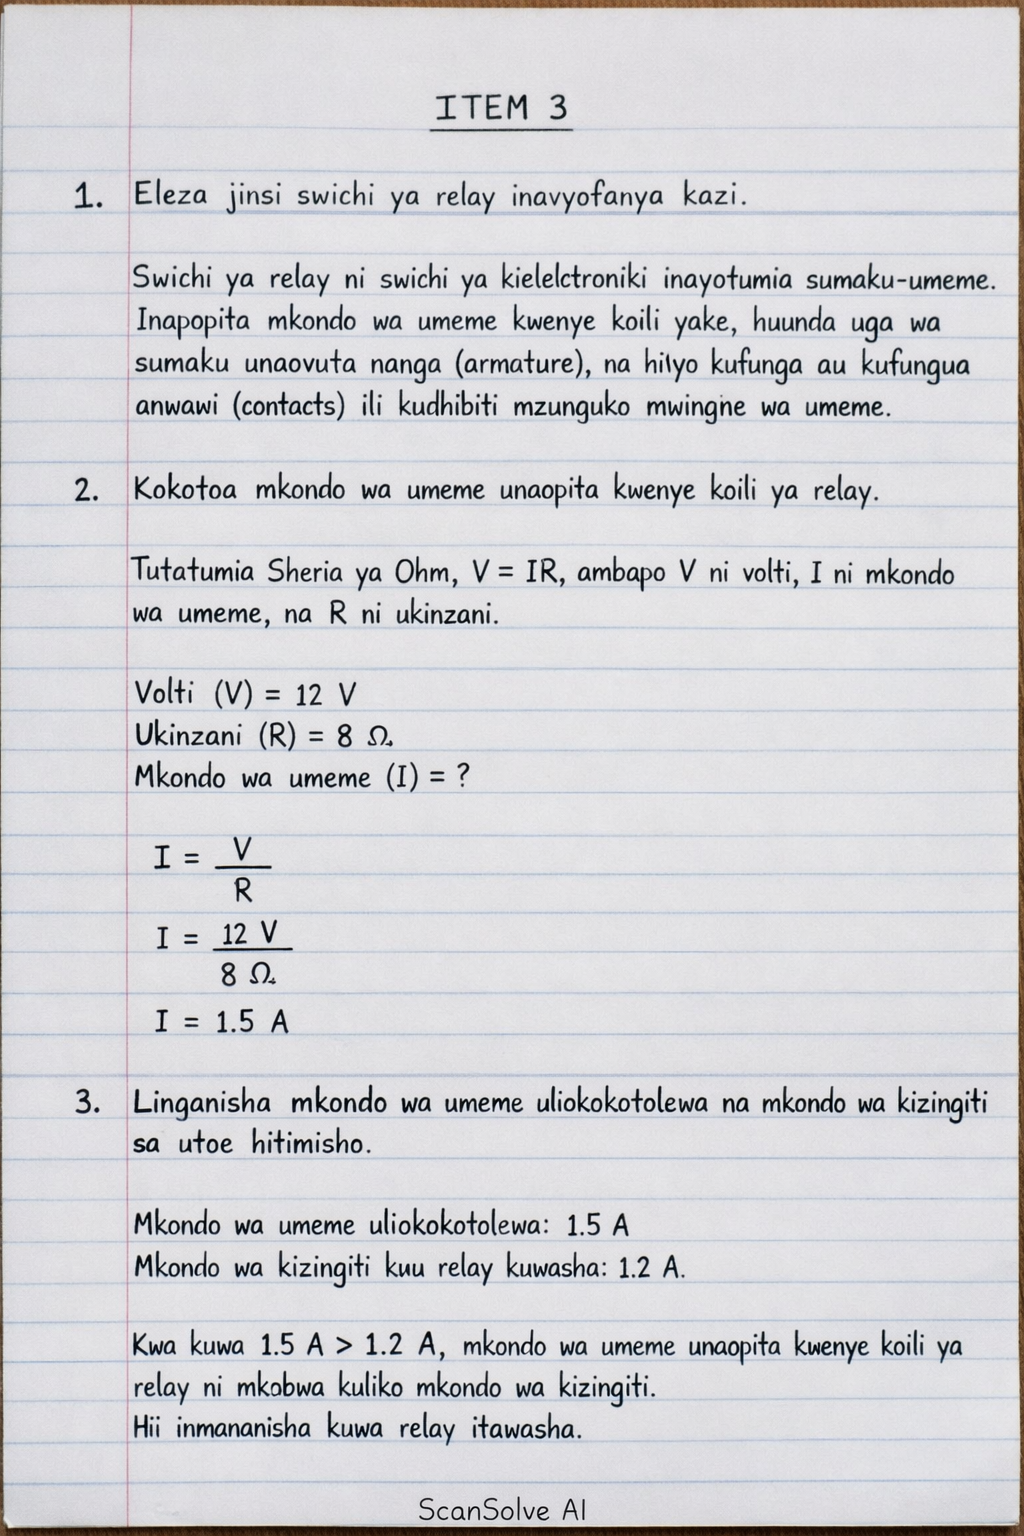 ITEM 3
1. Eleza jinsi swichi ya relay inavyofanya kazi.
Swichi ya relay ni swichi ya kielelctroniki inayotumia sumaku-umeme.
Inapopita mkondo wa umeme kwenye koili yake, huunda uga wa
sumaku unaovuta nanga (armature), na hilyo kufunga au kufungua
anwawi (contacts) ili kudhibiti mzunguko mwingne wa umeme.
2. Kokotoa mkondo wa umeme unaopita kwenye koili ya relay.
Tutatumia Sheria ya Ohm, V = IR, ambapo V ni volti, I ni mkondo
wa umeme, na R ni ukinzani.
Volti (V) = 12 V
Ukinzani (R) = 8 Ω
Mkondo wa umeme (I) = ?
I = V
R
I = 12 V
8 Ω
I = 1.5 A
3. Linganisha mkondo wa umeme uliokokotolewa na mkondo wa kizingiti
sa utoe hitimisho.
Mkondo wa umeme uliokokotolewa: 1.5 A
Mkondo wa kizingiti kuu relay kuwasha: 1.2 A.
Kwa kuwa 1.5 A > 1.2 A, mkondo wa umeme unaopita kwenye koili ya
relay ni mkobwa kuliko mkondo wa kizingiti.
Hii inmananisha kuwa relay itawasha.
ScanSolve AI